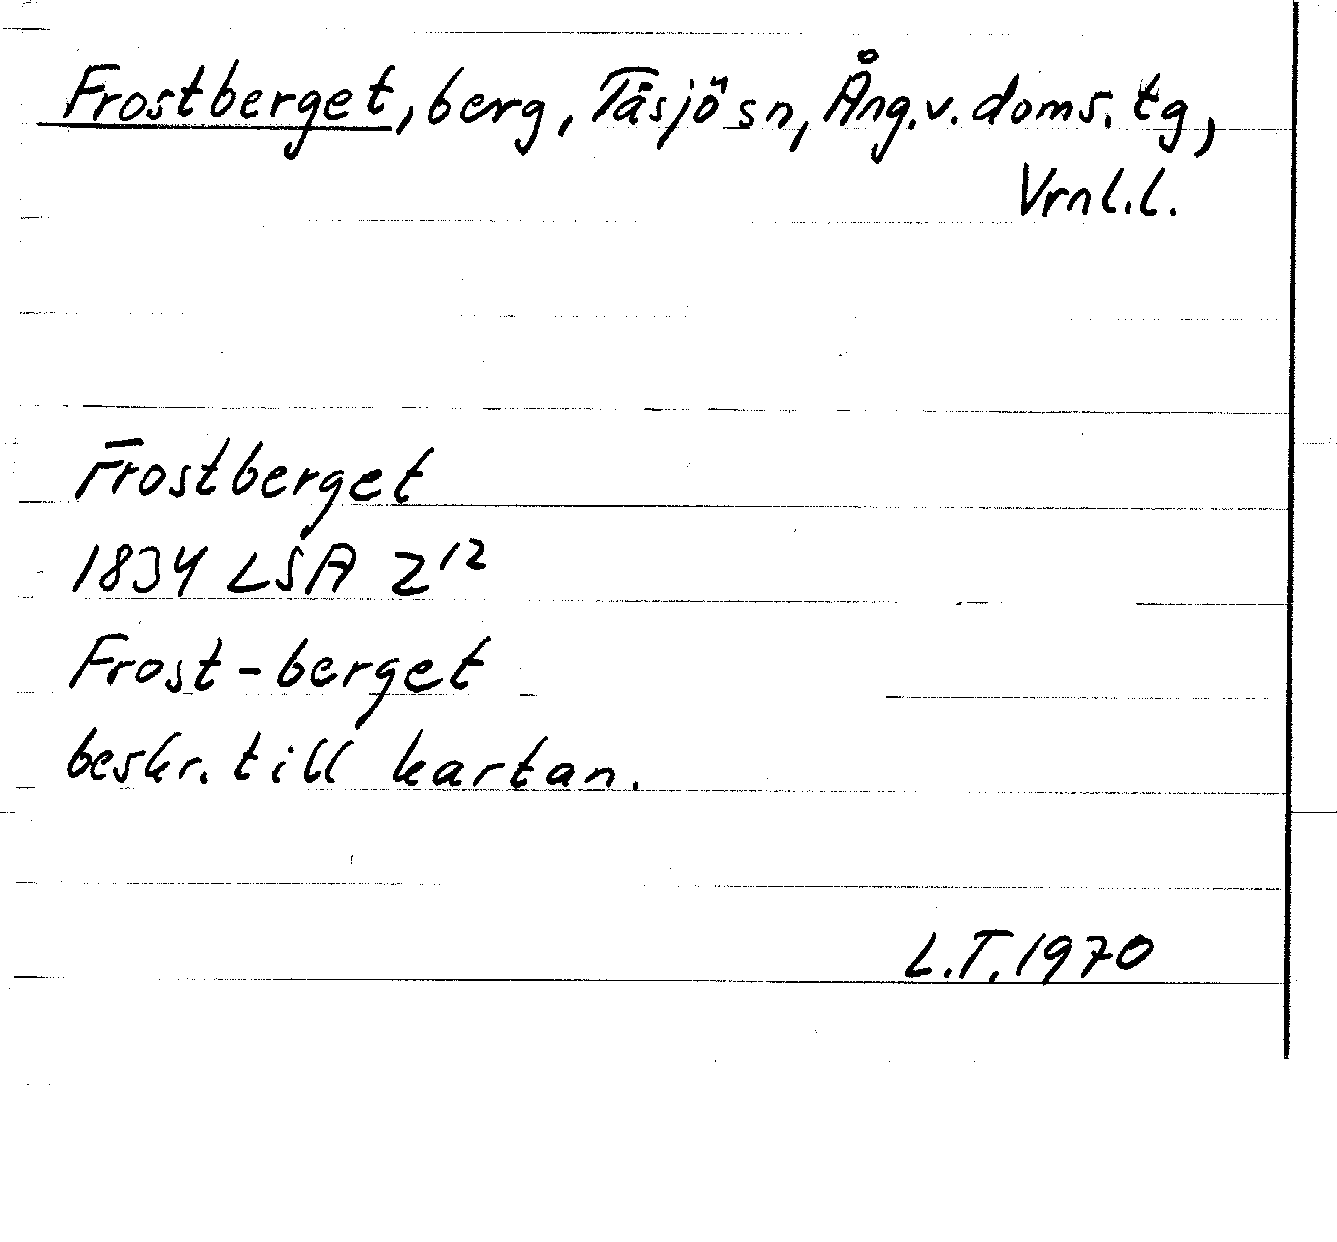 Frostberget, berg, Tåsjö sn, Ång. v. doms. tg,
Vrnl. l.
Frostberget
1834 LSA Z¹²
Frost-berget
beskr. till kartan.
L.T. 1970